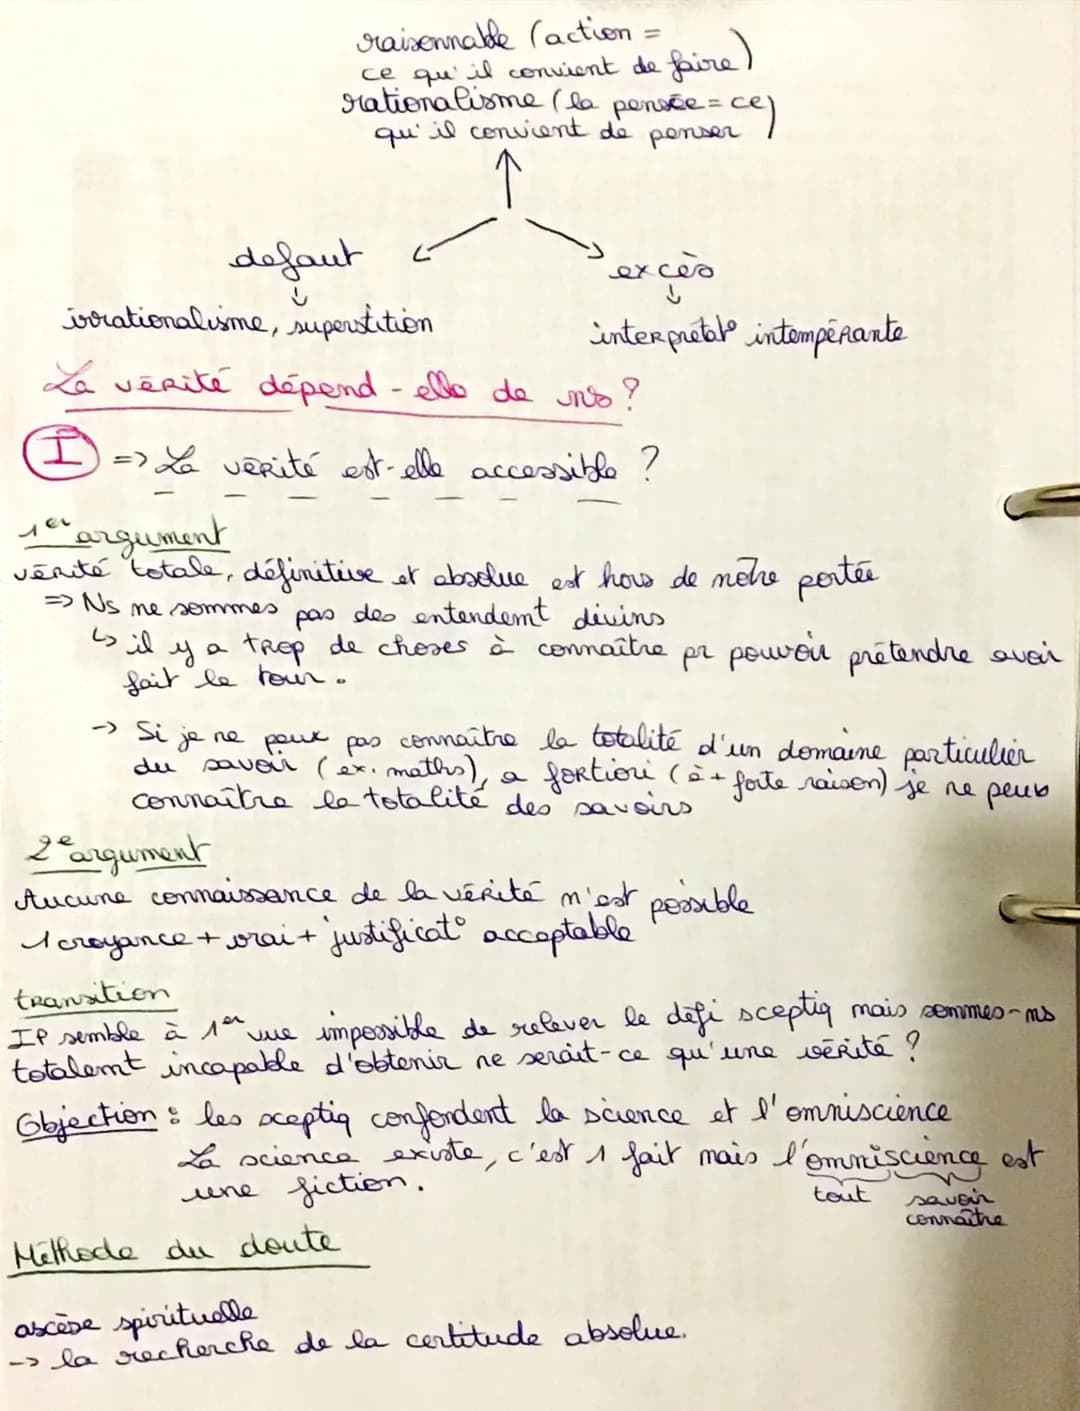 raisonnable (action =
ce qu'il convient de faire)
rationalisme (la pensée = ce
qu'il convient de penser)
defaut
excès
irrationalisme, superstition
interprétat° intempérante
La vérité dépend-elle de ns ?
I => La vérité est-elle accessible ?
1er argument
vérité totale, définitive et absolue est hors de notre portée
=> Ns ne sommes pas des entendemt divins
↳ il y a trop de choses à connaître pr pouvoir prétendre avoir
fait le tour.
-> Si je ne peux pas connaître la totalité d'un domaine particulier
du savoir (ex. maths), a fortiori (à + forte raison) je ne peux
connaître la totalité des savoirs
2e argument
Aucune connaissance de la vérité n'est possible
1 croyance + vrai + justificat° acceptable
transition
Il semble à 1er vue impossible de relever le défi sceptiq mais sommes-ns
totalemt incapable d'obtenir ne serait-ce qu'une vérité ?
Objection : les sceptiq confondent la science et l'omniscience
La science existe, c'est 1 fait mais l'omniscience est
une fiction.
tout savoir
connaître
Méthode du doute
ascèse spirituelle
-> la recherche de la certitude absolue.